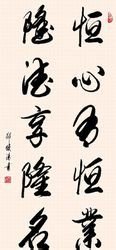 恒心有恒業
隆德享隆名